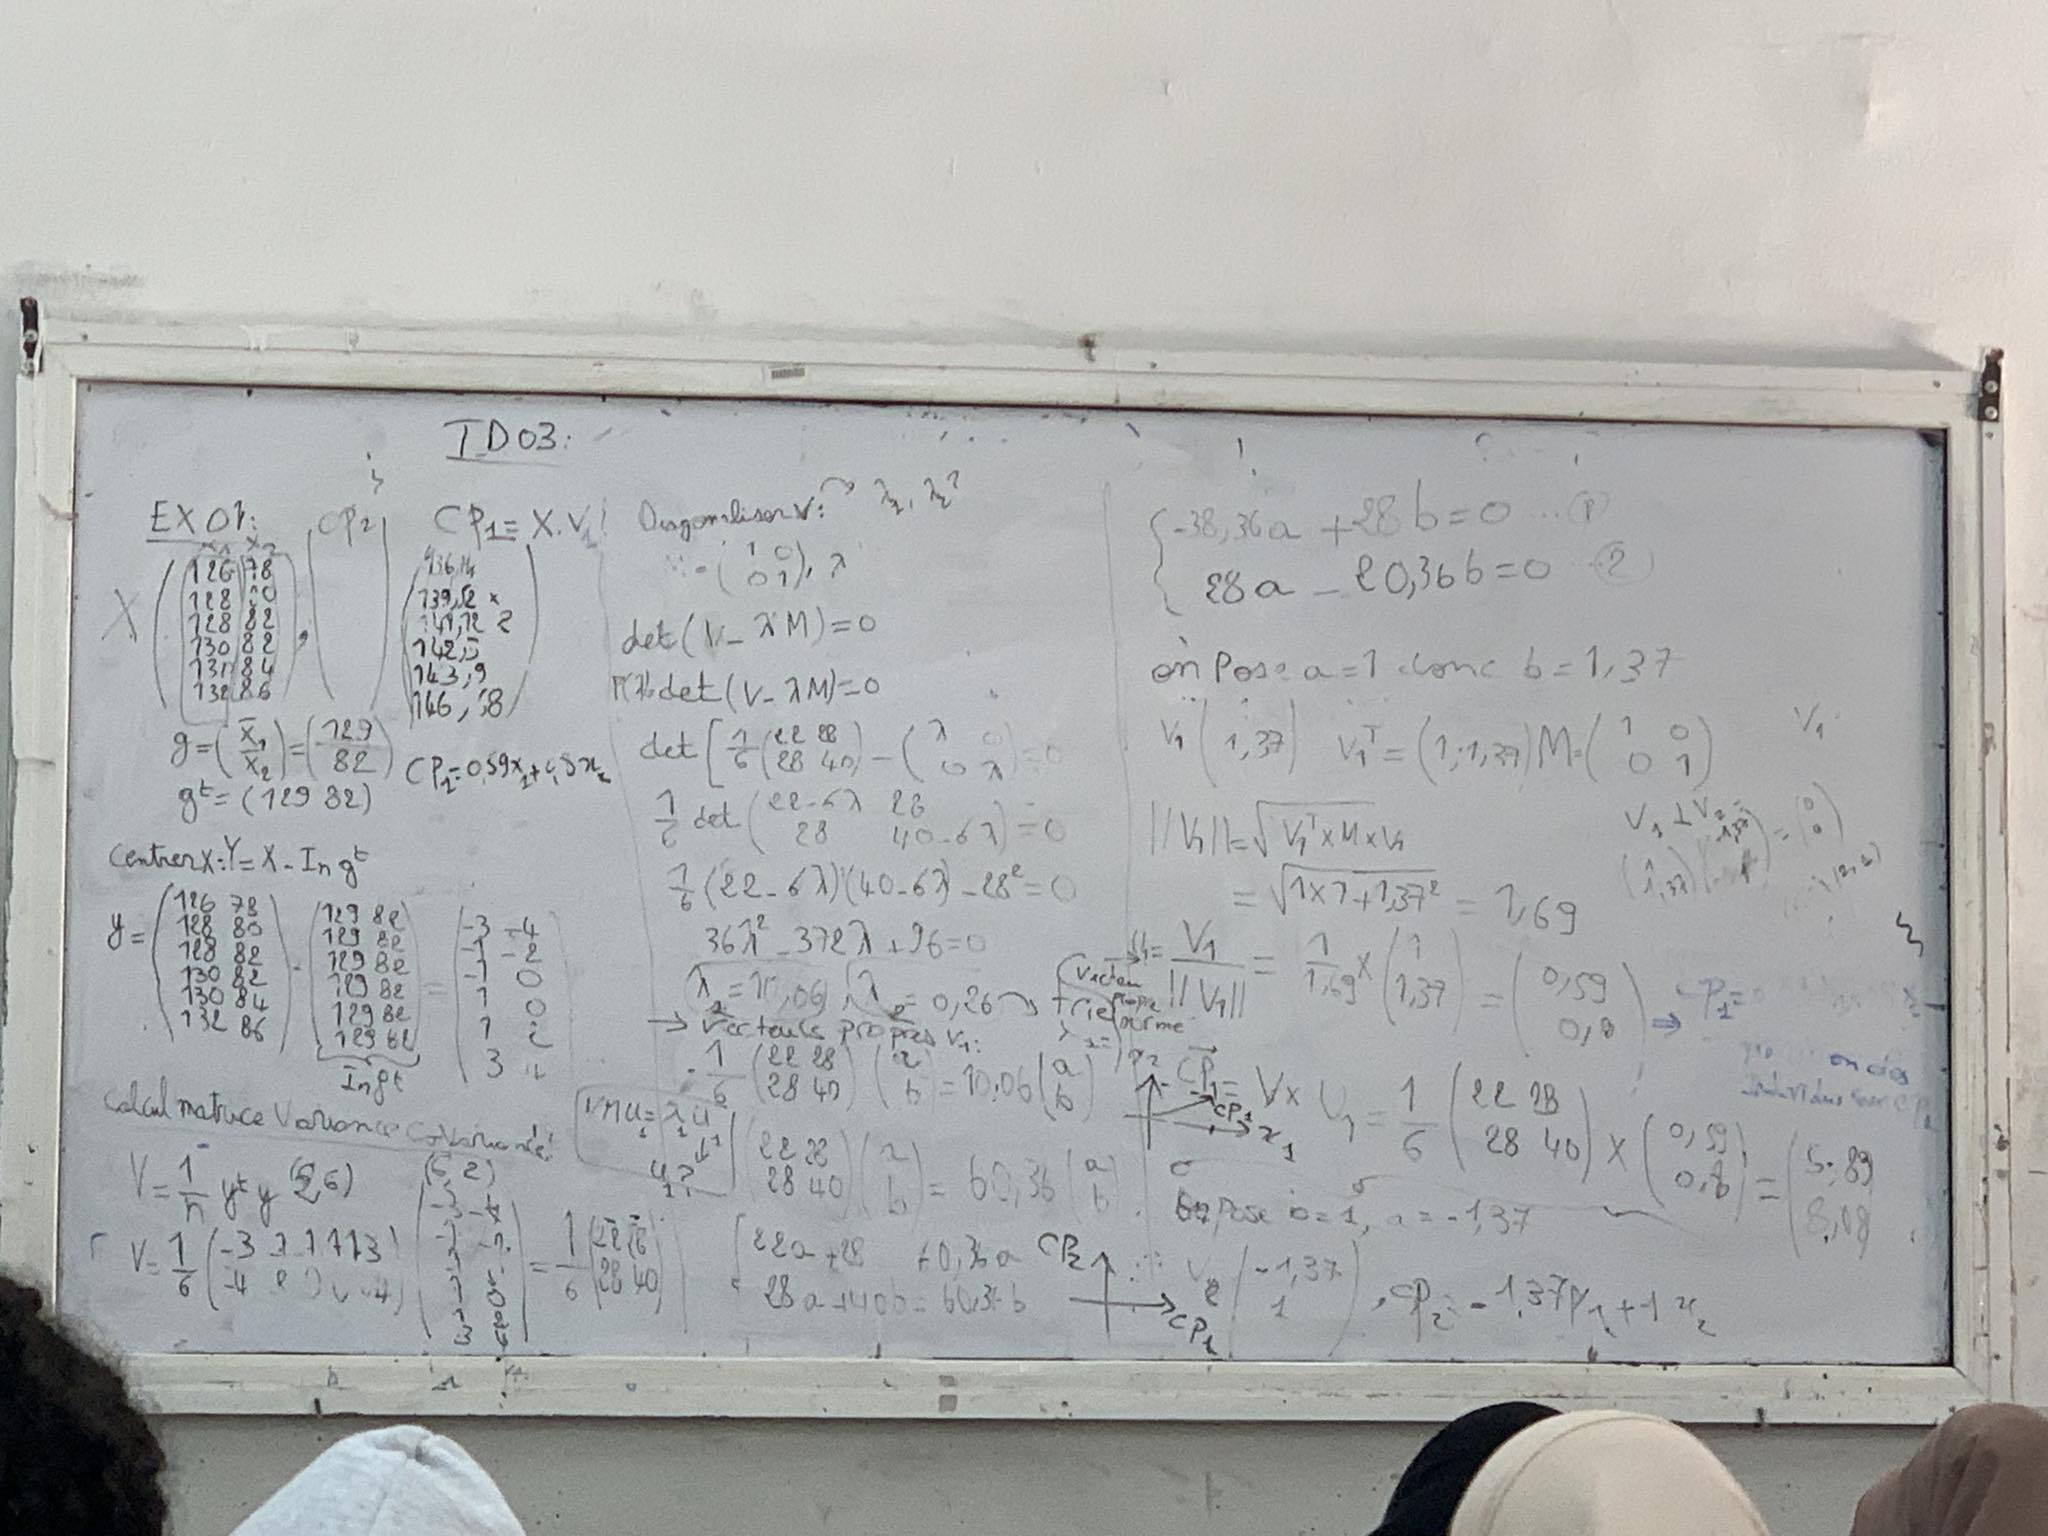 TD03:
EX01:
X
x₁ x₂
126 78
128 80
128 82
130 82
131 84
132 86
CP₂
CP₁ = X.V₁
136,14
139,52
141,12
142,3
143,9
146,18
g = (x̄₁ x̄₂) = (129 82)
gᵗ = (129 82)
CP₁ = 0,59x₁ + 0,8x₂
Centrer X: Y = X - In gᵗ
y =
126 78 - 129 82 = -3 -4
128 80 129 82 -1 -2
128 82 129 82 -1 0
130 82 129 82 1 0
130 84 129 82 1 2
132 86 129 82 3 4
In gᵗ
Calcul matrice Variance Covariance:
V = 1/n yᵗ y (2 6) (6 2)
V = 1/6 = 1/6 (22 28 28 40)
Diagonaliser V: → λ₁, λ₂?
(1 0 0 1), λ
det(V - λM) = 0
det(V - λM) = 0
det [1/6 (22 28 28 40) - (λ 0 0 λ)] = 0
1/6 det (22-6λ 28 28 40-6λ) = 0
1/6 (22 - 6λ)(40 - 6λ) - 28² = 0
36λ² - 372λ + 96 = 0
λ₁ = 10,06, λ₂ = 0,26 → trie
→ Vecteurs propres V₁:
1/6 (22 28 28 40) (a b) = 10,06 (a b)
VMU₁ = λ₁U₁
U₁?
(22 28 28 40) (a b) = 60,36 (a b)
22a + 28 60,36a
28a + 40b = 60,36b
CP₂
CP₁
-38,36a + 28b = 0 ... (1)
28a - 20,36b = 0 (2)
on Pose: a = 1 donc b = 1,37
V₁ (1,37) V₁ᵀ = (1; 1,37) M = (1 0 0 1) V₁
||V₁|| = √V₁ᵀ × M × V₁
V₁ ⊥ V₂
= √1×1 + 1,37² = 1,69
U₁ = V₁/||V₁|| = 1/1,69 × (1 1,37) = (0,59 0,8) ⇒ CP₁ =
Vecteur propre normé
x₂
CP₁
x₁
CP₁ = V × U₁ = 1/6 (22 28 28 40) × (0,59 0,8) = (5,89 8,08)
on Pose b = 1, a = -1,37
V₂ (-1,37 1), CP₂ = -1,37 + 1 x₂